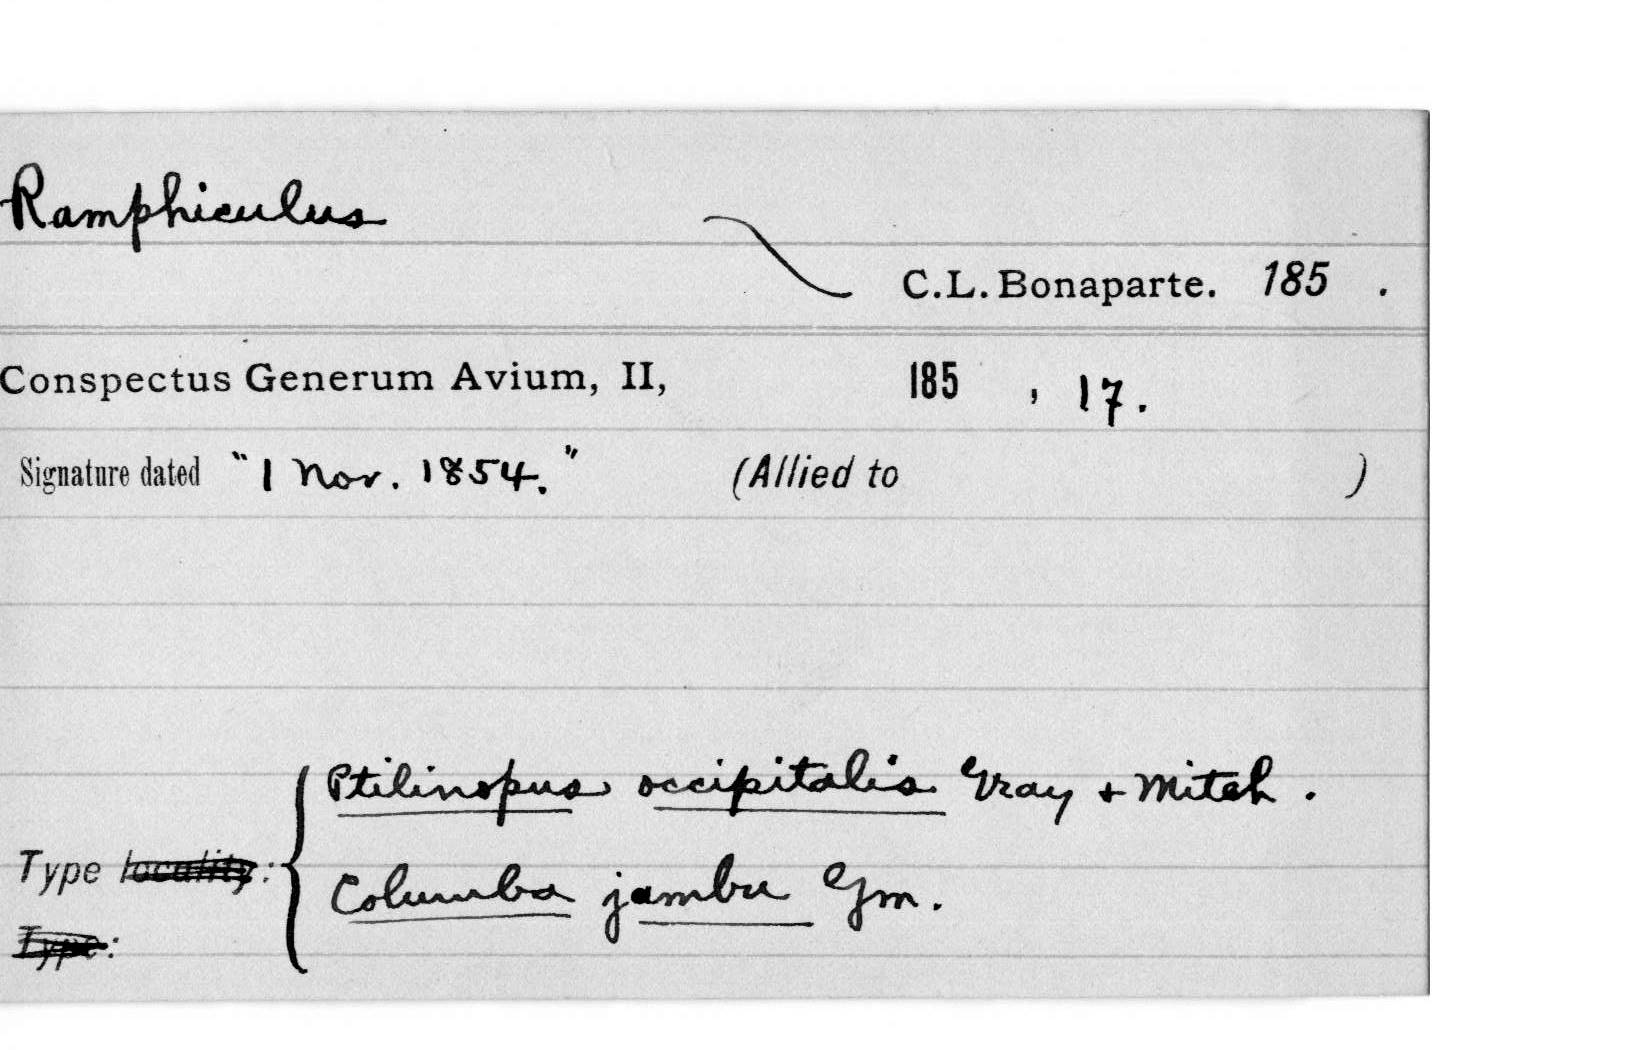 Ramphiculus
C.L. Bonaparte. 185 .
Conspectus Generum Avium, II, 185 , 17.
Signature dated "1 Nov. 1854." (Allied to )
Ptilinopus occipitalis Gray + Mitch.
Type locality:
Columba jambu Gm.
Type: